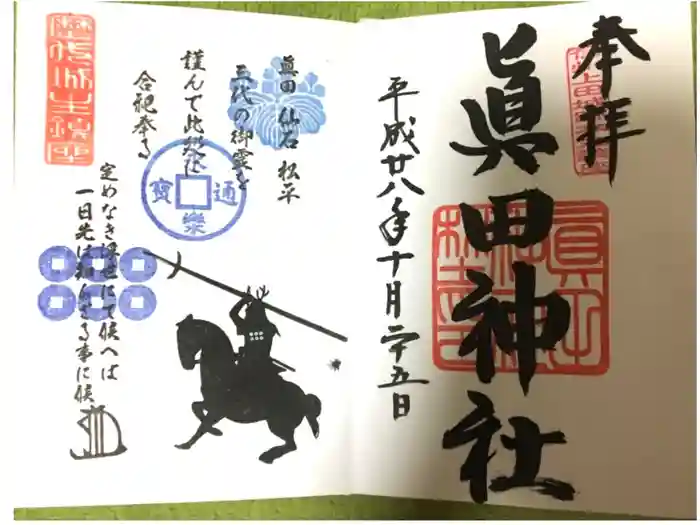 奉拝
眞田神社
平成廿八年十月二十五日
眞田 仙石 松平
三代の御霊を
謹んで此処に
合祀奉る
通寳
樂
定めなき浮世にて候へば
一日先は知れざる事に候